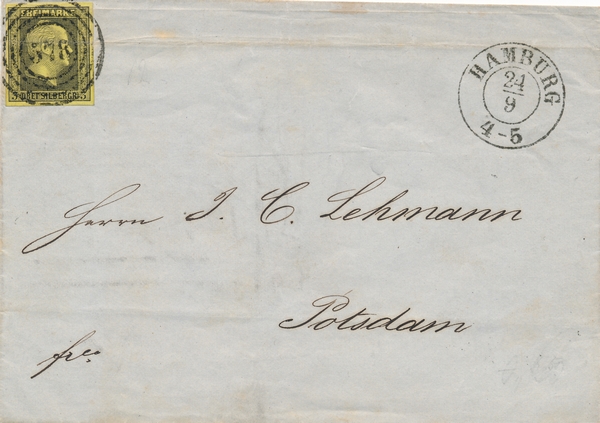 FREIMARKE
578
3 DREI SILBERGR. 3
HAMBURG
24
9
4-5
Herrn J. C. Lehmann
Potsdam
frco